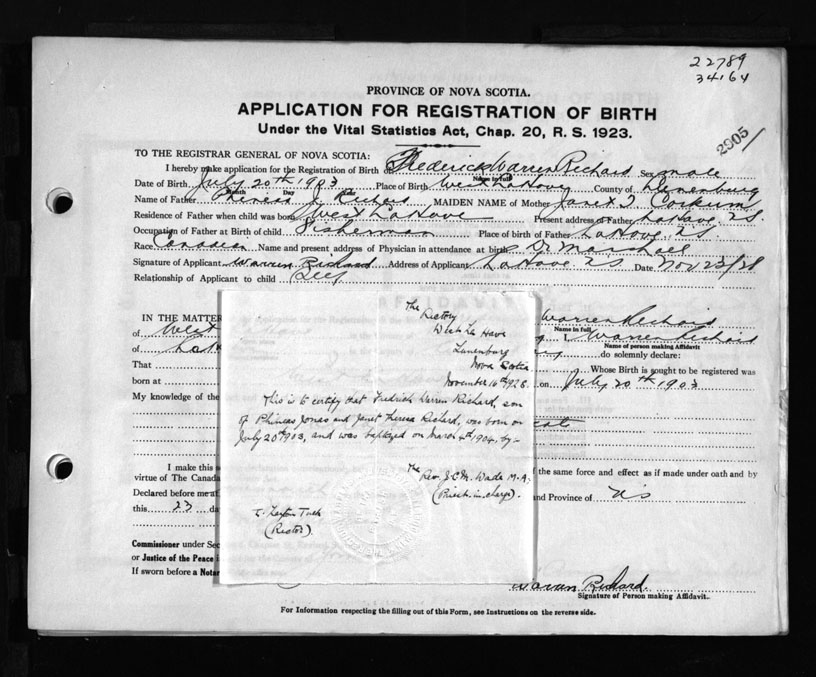 22789
34164
PROVINCE OF NOVA SCOTIA.
APPLICATION FOR REGISTRATION OF BIRTH
Under the Vital Statistics Act, Chap. 20, R. S. 1923.
2905/
TO THE REGISTRAR GENERAL OF NOVA SCOTIA:
I hereby make application for the Registration of Birth of Frederick Warren Richard Sex male
Name in full
Date of Birth July 20th 1903 Place of Birth West LaHave County of Lunenburg
Month Day Year
Name of Father MAIDEN NAME of Mother Janet T Corkum
Residence of Father when child was born West LaHave Present address of Father LaHave
Occupation of Father at Birth of child Fisherman Place of birth of Father LaHave
Race Canadian Name and present address of Physician in attendance at birth Dr
Signature of Applicant Warren Richard Address of Applicant LaHave Date Nov 23/28
Relationship of Applicant to child Self
IN THE MATTER Warren Richard
Name in full
of West Warren Richard
Name of person making Affidavit
of LaH do solemnly declare:
That Whose Birth is sought to be registered was
born at on July 20th 1903
My knowledge of the
I make this s f the same force and effect as if made under oath and by
virtue of The Canada
Declared before me at and Province of NS
this 23 da
Commissioner under Sec
or Justice of the Peace
If sworn before a Notar
Warren Richard
Signature of Person making Affidavit.
For Information respecting the filling out of this Form, see Instructions on the reverse side.
The Rectory
West La Have
Lunenburg
Nova Scotia
November 16th 1928.
This is to certify that Fredrick Warren Richard, son
of Phineas Jonas and Janet Theresa Richard, was born on
July 20th 1903, and was baptized on March 4th 1904, by:-
The Rev. J. C. M. Wade M.A.
(Priest in charge).
(Rector)